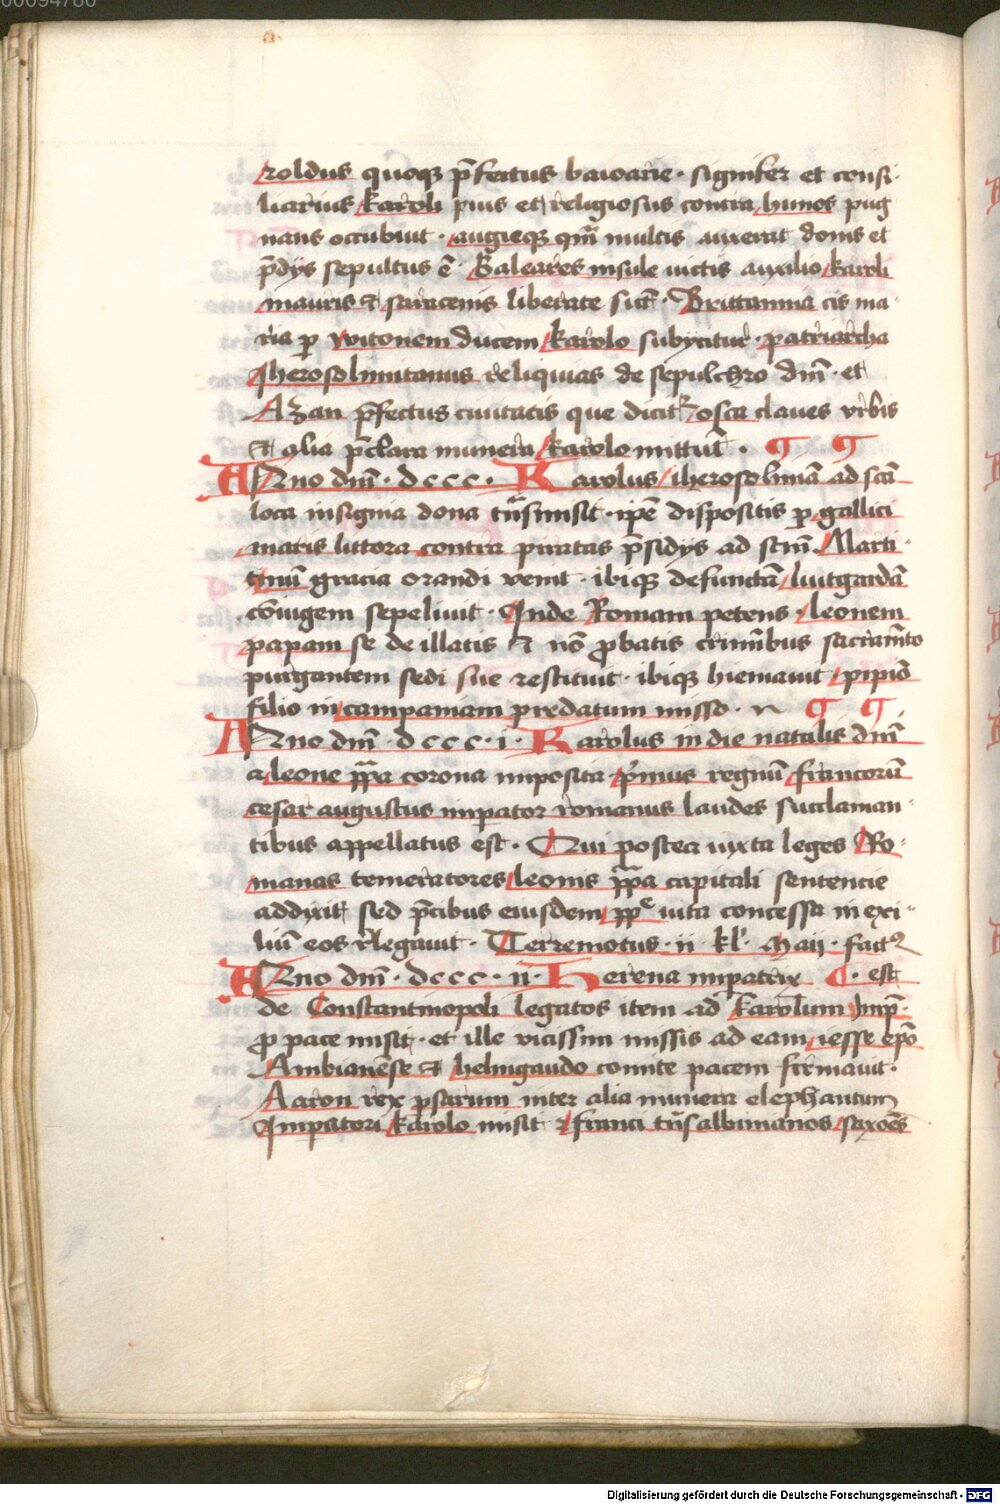 00094780
roldus quoqꝫ p̄fectus baioarie · signifer et consi·
liarius karoli pius et religiosus contra hunos pug
nans occubuit · augieqꝫ qm̄ multis auxerat donis et
p̄dijs sepultus ē · Baleares insule victis auxilio karoli
mauris ⁊ saracenis liberate sūt · Brittannia cis ma·
ria ꝑ witonem ducem karolo subycitur · patriarcha
Iherosolimitanus reliquias de sepulchro dm̄ · et
Azan p̄fectus ciuitatis que dicitꝛ osca claues vrbis
⁊ alia p̄clara munera karolo mittūt ·
Anno dm̄ · dccc · Karolus iherosolimā ad scā
loca insignia dona tn̄smisit · ip̄e dispositis ꝑ gallici
maris littora contra piratas p̄sidijs ad scm̄ Marti·
num gracia orandi venit · ibiqꝫ defunctā luitgardā
cōiugem sepeliuit · Inde Romam petens · leonem
papam se de illatis ⁊ nō ꝓbatis crimībus sacramēto
purgantem sedi sue restituit · ibiqꝫ hiemauit pipiō
filio in campaniam predatum misso ·
Anno dm̄ · dccc · i · Karolus in die natalis dm̄
a leone pp̄a corona imposita p̄mus regnū francorū
cesar augustus imꝑator romanus laudes succlaman·
tibus appellatus est · Qui postea iuxta leges Ro·
manas temeratores leonis pp̄a capitali sentencie
addixit sed p̄cibus eiusdem pp̄e vita concessa in exi·
liū eos r̄legauit · Terremotus · ii · kl' · Maii · factꝰ
Anno dm̄ · dccc · ii · Herena imꝑatrix · est
de Constantinopoli legatos item ad karolum Imp̄ ·
ꝓ pace misit · et ille vicissim missis ad eam iesse ep̄o
Ambianēse ⁊ helmgaudo comite pacem firmauit ·
Aaron rex ꝑsarum inter alia munera elephantum
Imꝑatori karolo misit ⁊ franci tn̄salbimanos saxoēs
Digitalisierung gefördert durch die Deutsche Forschungsgemeinschaft - DFG